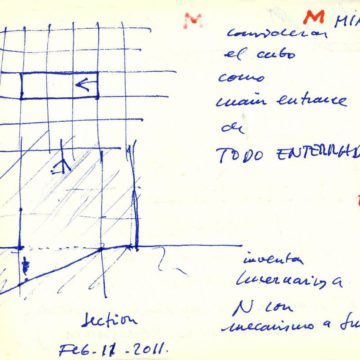 M
M MIA
considerar
el cubo
como
main entrance
de
TODO ENTERRAD
inventa
N con
mecanismo a
section
Feb-11-2011.